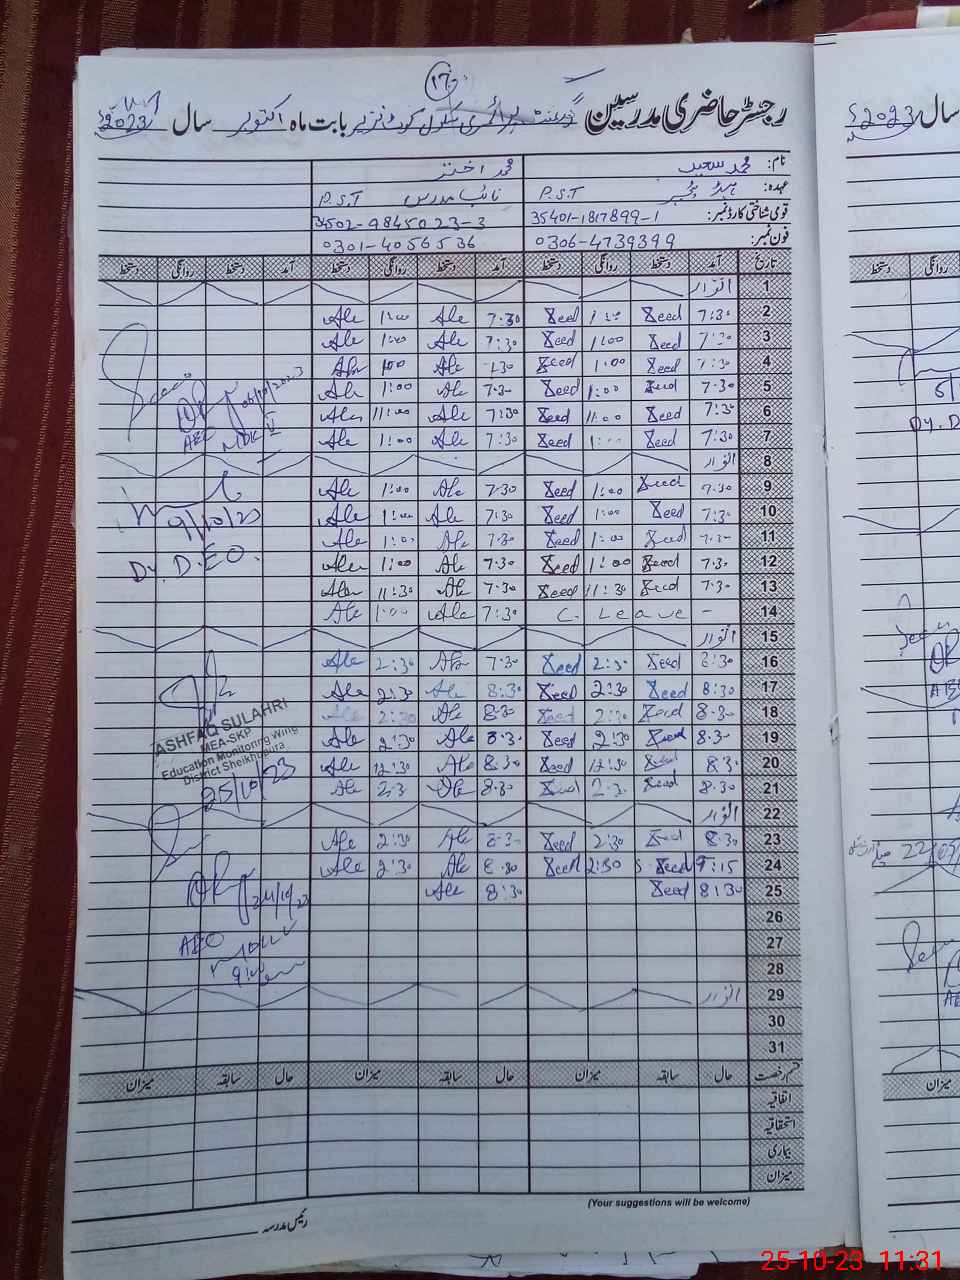 ۱۶
رجسٹر حاضری مدرسین گورنمنٹ پرائمری سکول بابت ماہ اکتوبر سال 2023
نام: محمد سعید محمد اختر
عہدہ: ہیڈ ٹیچر P.S.T نائب مدرس P.S.T
قومی شناختی کارڈ نمبر: 35401-1817899-1 34502-9845023-3
فون نمبر: 0306-4739399 0301-4056536
تاریخ آمد دستخط روانگی دستخط آمد دستخط روانگی دستخط آمد دستخط روانگی دستخط
1 اتوار
2 7:30 Seed 1:00 Seed 7:30 Ale 1:00 Ale
3 7:30 Seed 1:00 Seed 7:30 Ale 1:00 Ale
4 7:30 Seed 1:00 Seed 7:30 Ale 1:00 Ale
5 7:30 Seed 1:00 Seed 7:30 Ale 1:00 Ale
6 7:30 Seed 11:00 Seed 7:30 Ale 11:00 Ale
7 7:30 Seed 1:00 Seed 7:30 Ale 1:00 Ale
8 اتوار
9 7:30 Seed 1:00 Seed 7:30 Ale 1:00 Ale
10 7:30 Seed 1:00 Seed 7:30 Ale 1:00 Ale
11 7:30 Seed 1:00 Seed 7:30 Ale 1:00 Ale
12 7:30 Seed 1:00 Seed 7:30 Ale 1:00 Ale
13 7:30 Seed 11:30 Seed 7:30 Ale 11:30 Ale
14 C. Leave - 7:30 Ale 1:00 Ale
15 اتوار
16 8:30 Seed 2:30 Seed 7:30 Ale 2:30 Ale
17 8:30 Seed 2:30 Seed 8:30 Ale 2:30 Ale
18 8:30 Seed 2:30 Seed 8:30 Ale 2:30 Ale
19 8:30 Seed 2:30 Seed 8:30 Ale 2:30 Ale
20 8:30 Seed 12:30 Seed 8:30 Ale 12:30 Ale
21 8:30 Seed 2:30 Seed 8:30 Ale 2:30 Ale
22 اتوار
23 8:30 Seed 2:30 Seed 8:30 Ale 2:30 Ale
24 9:15 Seed 2:30 Seed 8:30 Ale 2:30 Ale
25 8:30 Seed 8:30 Ale
26
27
28
29 اتوار
30
31
06/10/2023
AEO
9/10/23
Dy. D.E.O.
ASHFAQ SULAHRI
MEA-SKP
Education Monitoring Wing
District Sheikhupura
25/10/23
24/10/23
AEO
قسم رخصت حال سابقہ میزان حال سابقہ میزان حال سابقہ میزان
اتفاقیہ
استحقاقیہ
بیماری
میزان
(Your suggestions will be welcome)
رئیس مدرسہ
سال 2023
روانگی دستخط
Dy. D
25-10-23 11:31